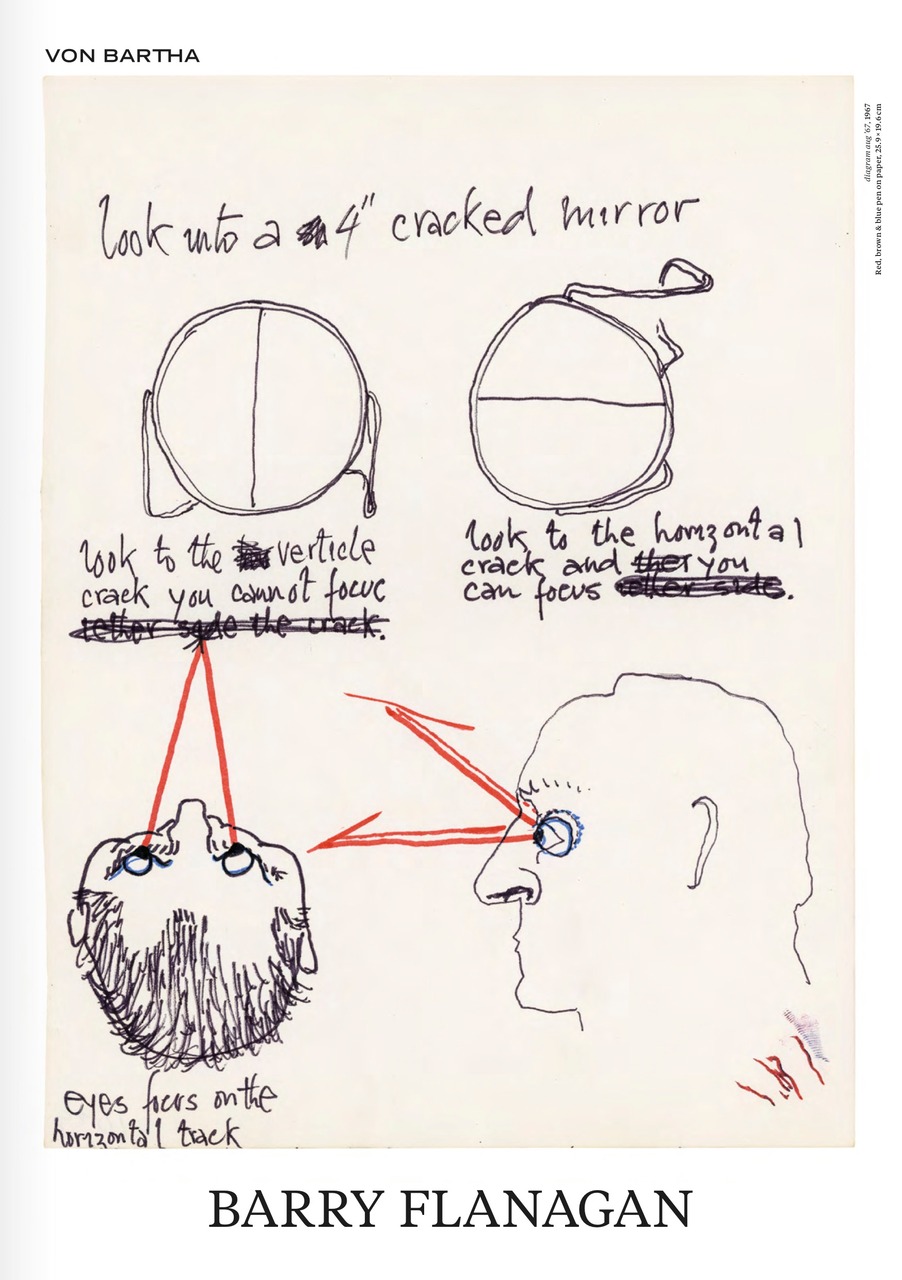 VON BARTHA
diagram aug '67, 1967
Red, brown & blue pen on paper, 25.9 × 19.6 cm
look into a 4" cracked mirror
look to the verticle
crack you cannot focuc
look to the horizontal
crack and you
can focus .
eyes focus on the
horizontal track
BARRY FLANAGAN